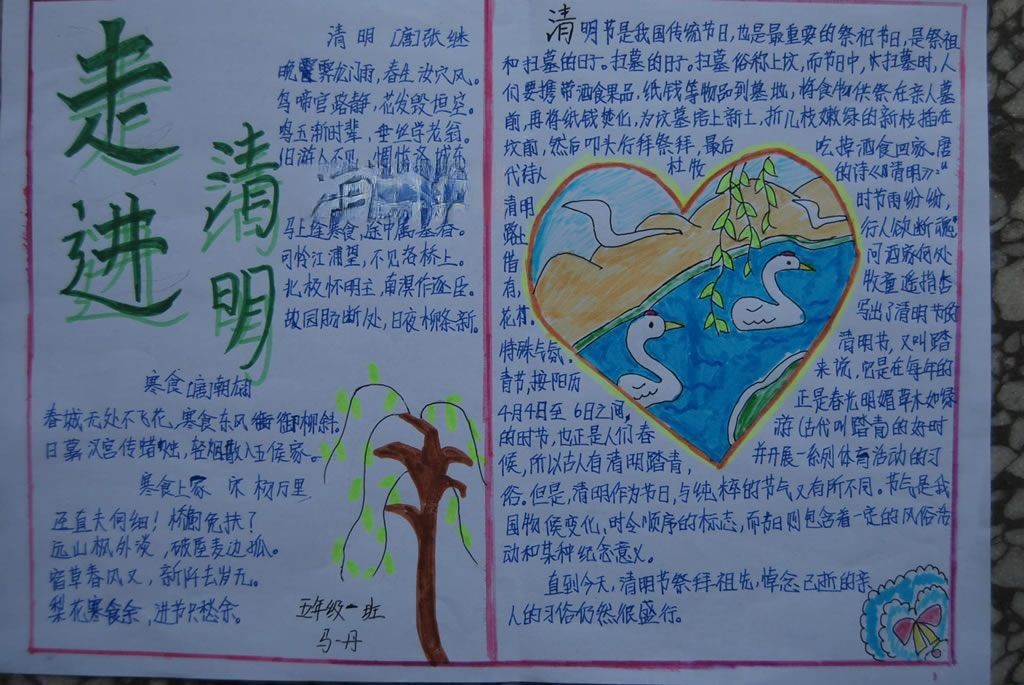 走进
清明
清 明 [唐]张继
春生
鸟啼官路静,花发毁垣空。
马上逢寒食,途中属暮春。
可怜江浦望,不见洛桥上。
北极怀明主,南溟作逐臣。
故园肠断处,日夜柳条新。
寒食[唐]
春城无处不飞花,寒食东风御柳斜。
日暮汉宫传蜡烛,轻烟散入五侯家。
寒食上冢 宋 杨万里
远山枫外淡,破屋麦边孤。
宿草春风又,新阡去岁无。
梨花寒食余,进节只愁余。
五年级一班
马丹
清明节是我国传统节日,也是最重要的祭祖节日,是祭祖
和扫墓的日子。扫墓的日子。扫墓俗称上坟,而节日中,扫墓时,人
们要携带酒食果品,纸钱等物品到墓地,将食物供祭在亲人墓
前,再将纸钱焚化,为坟墓培上新土,折几枝嫩绿的新枝插在
坟前,然后叩头行拜祭拜,最后 吃掉酒食回家。唐
代诗人 杜牧 的诗《清明》:“
清明 时节雨纷纷,
路上 行人欲断魂”
借 问酒家何处
有, 牧童遥指杏
花村。 写出了清明节的
特殊气氛。 清明节,又叫踏
青节,按阳历 来说,它是在每年的
4月4日至 6日之间, 正是春光明媚草木如绿
的时节,也正是人们春 游(古代叫踏青)的好时
候,所以古人有清明踏青, 并开展一系列体育活动的习
俗。但是,清明作为节日,与纯粹的节气又有所不同。节气是我
国物候变化,时令顺序的标志,而节日则包含着一定的风俗活
动和某种纪念意义。
直到今天,清明节祭拜祖先,悼念已逝的亲
人的习俗仍然很盛行。